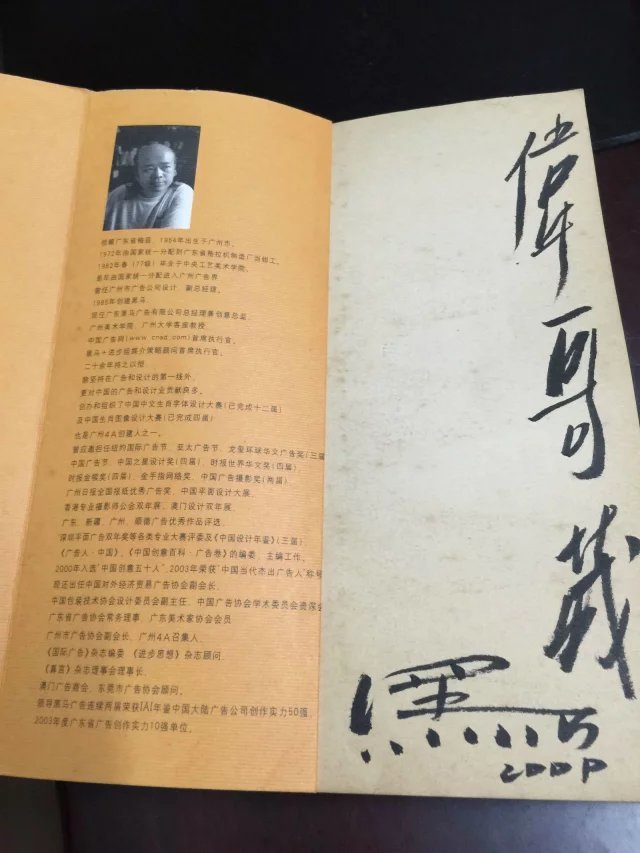 祖籍广东省梅县，1954年出生于广州市。
1972年由国家统一分配到广东省拖拉机制造厂当钳工。
1982年春（77级）毕业于中央工艺美术学院。
是年由国家统一分配进入广州广告界
曾任广州市广告公司设计、副总经理。
1985年创建黑马。
现任广东黑马广告有限公司总经理兼创意总监，
广州美术学院、广州大学客座教授，
中国广告网(www.cnad.com)首席执行官。
黑马+进步组媒介策略顾问首席执行官。
二十余年持之以恒，
除坚持在广告和设计的第一线外，
更对中国的广告和设计业贡献良多。
创办和组织了中国中文生肖字体设计大赛(已完成十二届)
及中国生肖图像设计大赛(已完成四届)
也是广州4A创建人之一。
曾应邀担任纽约国际广告节、亚太广告节、龙玺环球华文广告奖(三届
中国广告节、中国之星设计奖(四届)、时报世界华文奖(四届)、
时报金犊奖(四届)、金手指网络奖、中国广告摄影奖(两届)、
广州日报全国报纸优秀广告奖、中国平面设计大展、
香港专业摄影师公会双年展、澳门设计双年展、
广东、新疆、广州、顺德广告优秀作品评选、
深圳平面广告双年奖等各类专业大赛评委及《中国设计年鉴》(三届)、
《广告人·中国》、《中国创意百科·广告卷》的编委、主编工作。
2000年入选"中国创意五十人"，2003年荣获"中国当代杰出广告人"称号
现还出任中国对外经济贸易广告协会副会长、
中国包装技术协会设计委员会副主任、中国广告协会学术委员会资深会
广东省广告协会常务理事、广东美术家协会会员、
广州市广告协会副会长、广州4A召集人、
《国际广告》杂志编委、《进步思想》杂志顾问、
《真言》杂志理事会理事长、
澳门广告商会、东莞市广告协会顾问。
领导黑马广告连续两届荣获IAI年鉴中国大陆广告公司创作实力50强，
2003年度广东省广告创作实力10强单位。
偉哥藏
黑马